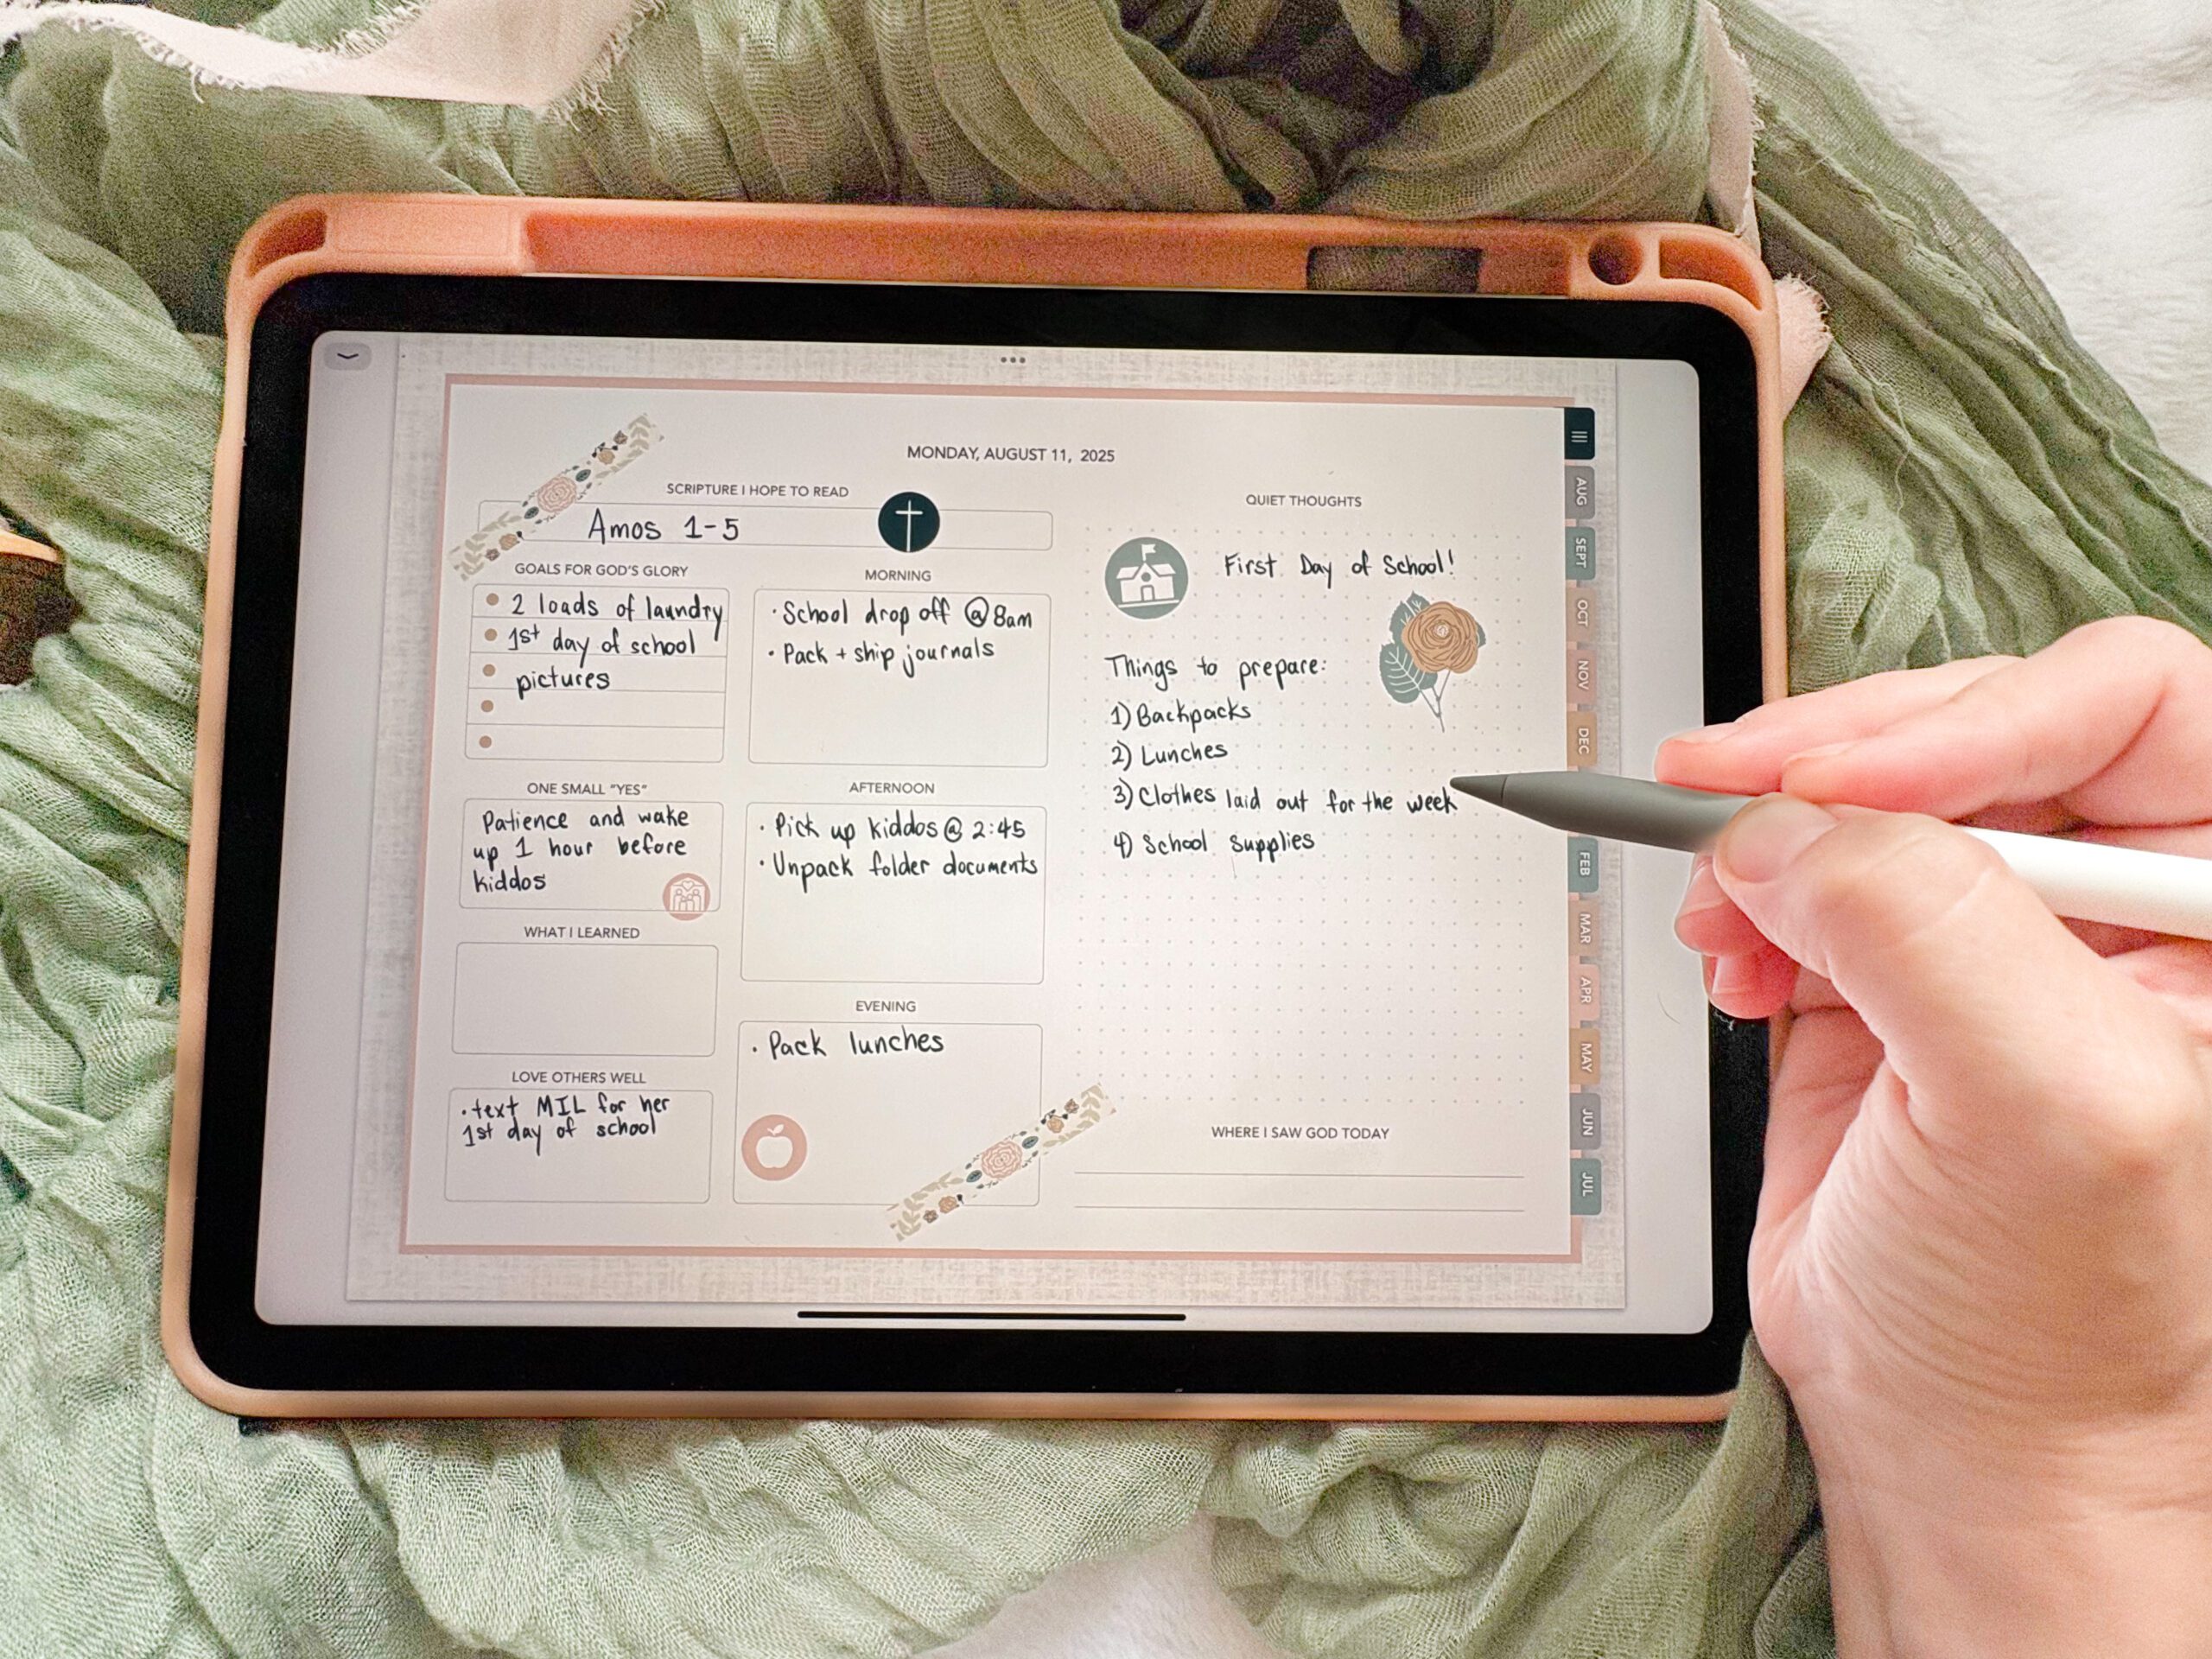 MONDAY, AUGUST 11, 2025
SCRIPTURE I HOPE TO READ
Amos 1-5
GOALS FOR GOD'S GLORY
2 loads of laundry
1st day of school
pictures
ONE SMALL "YES"
Patience and wake
up 1 hour before
kiddos
WHAT I LEARNED
LOVE OTHERS WELL
• text MIL for her
1st day of school
MORNING
• School drop off @ 8am
• Pack + ship journals
AFTERNOON
• Pick up kiddos @ 2:45
• Unpack folder documents
EVENING
• Pack lunches
QUIET THOUGHTS
First Day of School!
Things to prepare:
1) Backpacks
2) Lunches
3) Clothes laid out for the week
4) School Supplies
WHERE I SAW GOD TODAY
AUG
SEPT
OCT
NOV
DEC
FEB
MAR
APR
MAY
JUN
JUL